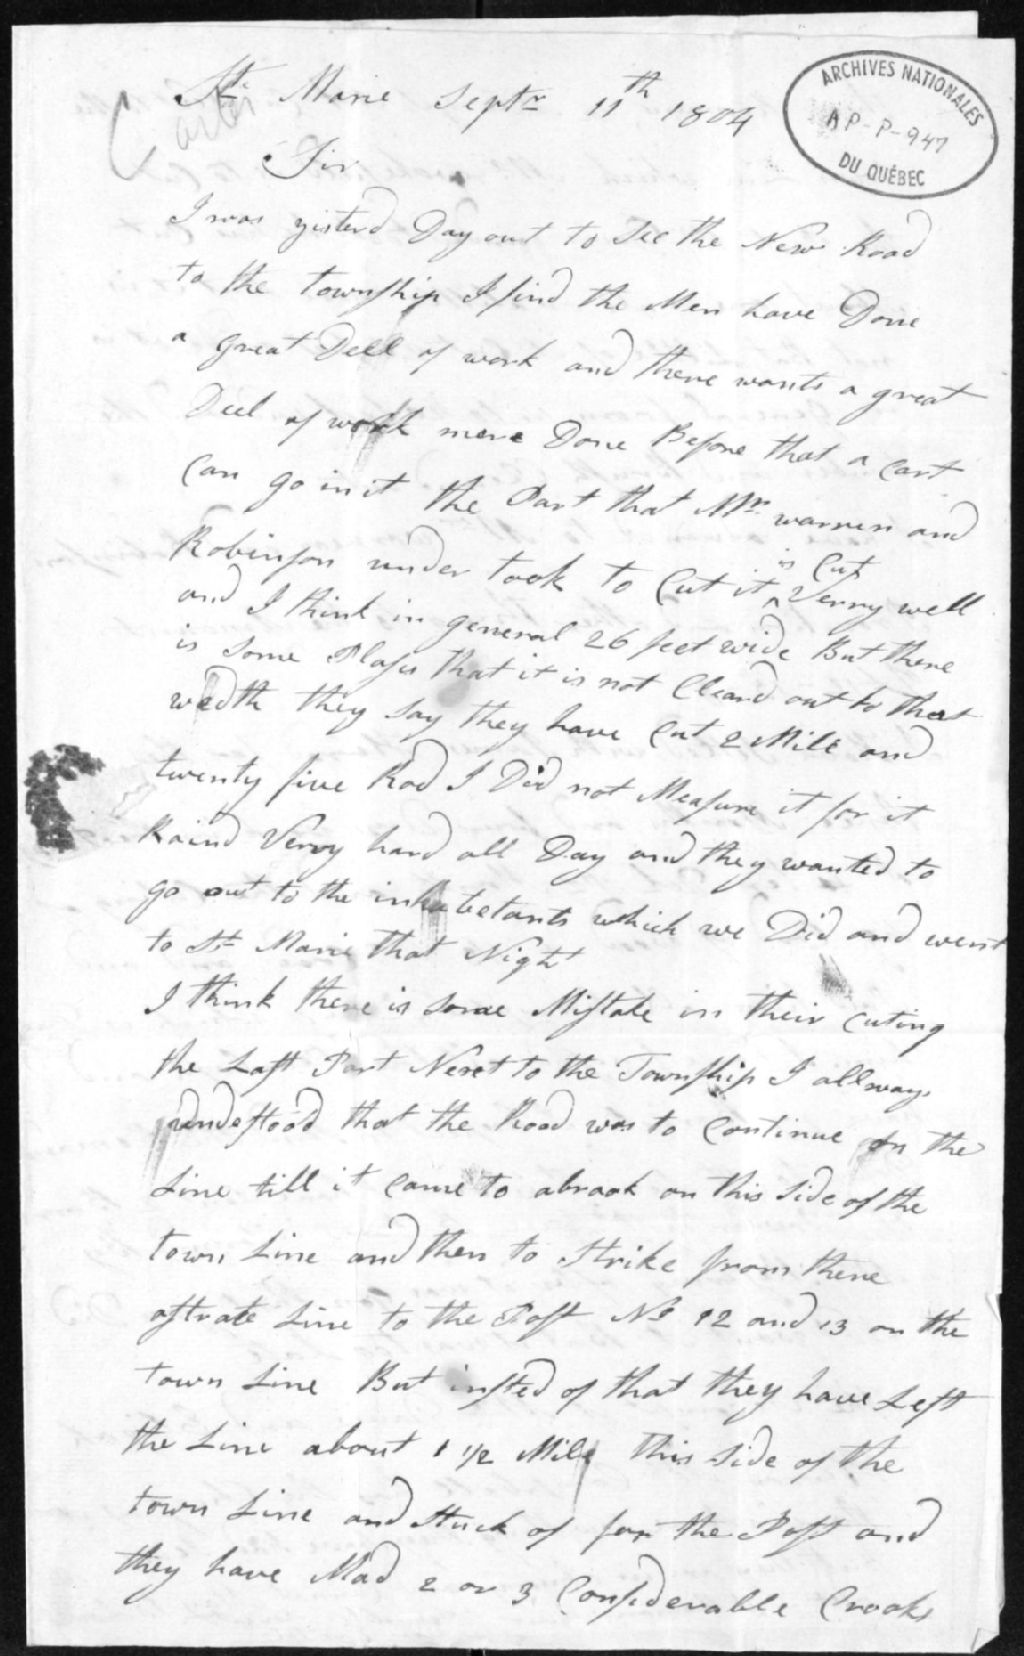 St Marie Septr 11th 1804
Carter
ARCHIVES NATIONALES
AP-P-947
DU QUÉBEC
Sir
I was yisterd Day out to See the New Road
to the township I find the Men have Done
a great Dell of work and there wants a great
Deel of work more Done Before that a Cart
Can go in it the Part that Mr warren and
Robinson under took to Cut it is Cut Verry well
and I think in general 26 feet wide But there
is Some Plases that it is not Cleard out to that
wedth they Say they have Cut 2 Mile and
twenty five Rod I Did not Measure it for it
Raind Verry hard all Day and they wanted to
go out to the inhabetants which we Did and went
to St Marie that Night
I think there is Some Mistake in their Cuting
the Last Part Next to the Township I allways
undestood that the Road was to Continue on the
Line till it Came to abrook on this Side of the
town Line and then to Strike from there
astrate Line to the Post No 12 and 13 on the
town Line But insted of that they have Left
the Line about 1 1/2 Mile this Side of the
town Line and Stuck of for the Post and
they have Mad 2 or 3 Considerable Crooks